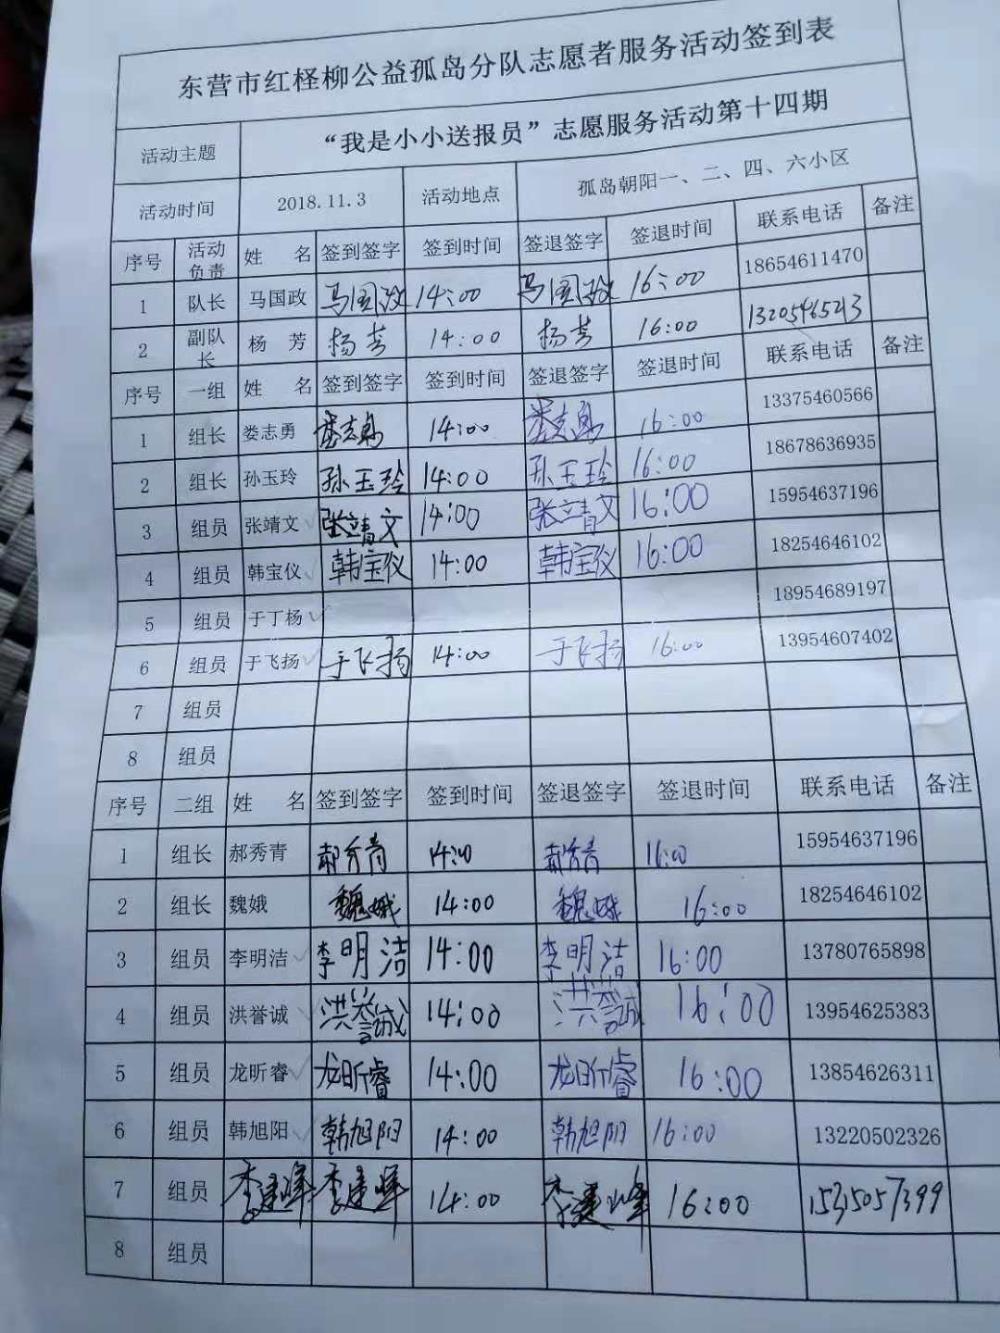 东营市红柽柳公益孤岛分队志愿者服务活动签到表
活动主题 “我是小小送报员”志愿服务活动第十四期
活动时间 2018.11.3 活动地点 孤岛朝阳一、二、四、六小区
序号 活动负责 姓 名 签到签字 签到时间 签退签字 签退时间 联系电话 备注
1 队长 马国政 马国政 14:00 马国政 16:00 18654611470
2 副队长 杨 芳 杨芳 14:00 杨芳 16:00 13205465213
序号 一组 姓 名 签到签字 签到时间 签退签字 签退时间 联系电话 备注
1 组长 娄志勇 娄志勇 14:00 娄志勇 16:00 13375460566
2 组长 孙玉玲 孙玉玲 14:00 孙玉玲 16:00 18678636935
3 组员 张靖文 张靖文 14:00 张靖文 16:00 15954637196
4 组员 韩宝仪 韩宝仪 14:00 韩宝仪 16:00 18254646102
5 组员 于丁杨 18954689197
6 组员 于飞扬 于飞扬 14:00 于飞扬 16:00 13954607402
7 组员
8 组员
序号 二组 姓 名 签到签字 签到时间 签退签字 签退时间 联系电话 备注
1 组长 郝秀青 郝秀青 14:00 郝秀青 16:00 15954637196
2 组长 魏娥 魏娥 14:00 魏娥 16:00 18254646102
3 组员 李明洁 李明洁 14:00 李明洁 16:00 13780765898
4 组员 洪誉诚 洪誉诚 14:00 洪誉诚 16:00 13954625383
5 组员 龙昕睿 龙昕睿 14:00 龙昕睿 16:00 13854626311
6 组员 韩旭阳 韩旭阳 14:00 韩旭阳 16:00 13220502326
7 组员 李建峰 李建峰 14:00 李建峰 16:00 15315057399
8 组员